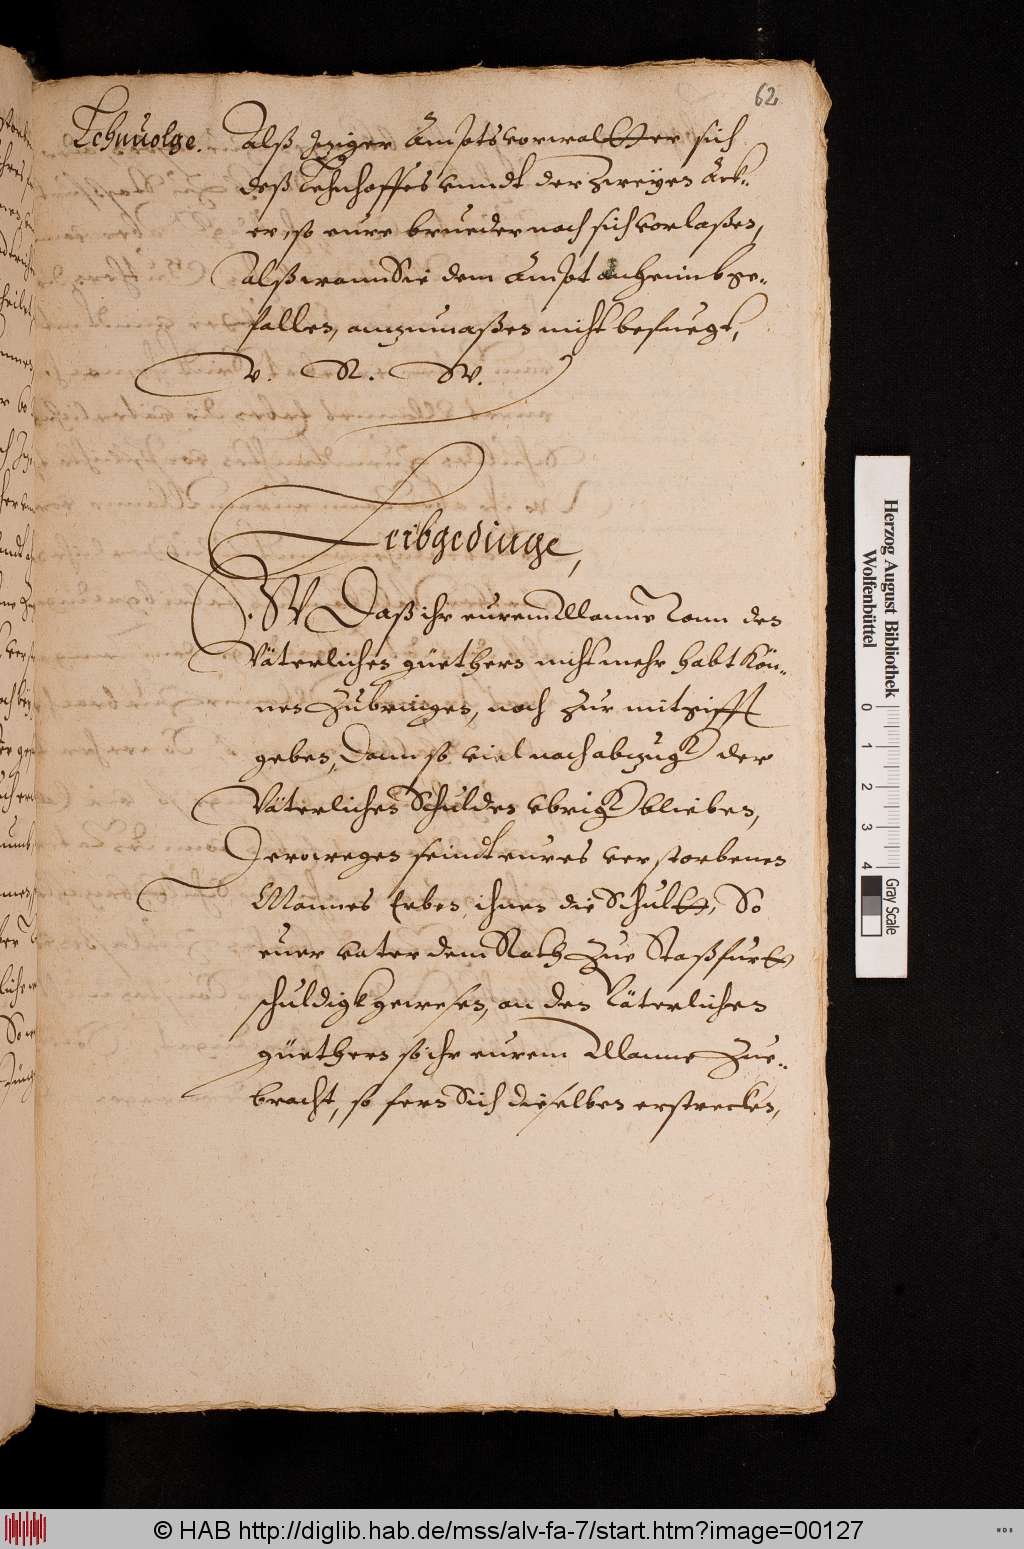 62
Lehnuolge.
alß Itziger Ambtsvorwaltter sich
deß Lehnhoffes vnndt der zweyen Äck-
er, so eure bruedere nach sich vorlaßen,
alß wann Sie dem Ambt anheimb ge-
fallen, anzumaßen nicht befuegt,
V. R. W.
Leibgedinge,
W Daß ihr eurem Manne von den
Väterlichen güethern nicht mehr habt Kön-
nen Zubringen, noch zur mitgifft
geben, Dann so viel nach abzugk der
Väterlichen Schulden vbrigk blieben,
Derowegen seindt eures verstorbenen
Mannes Erben, ihnen die Schultt, So
euer vater dem Rath Zue Staßfurtt
schuldigk gewesen, an den Väterlichen
güethern so ihr eurem Manne Zue-
bracht, so fern Sich dieselben erstrecken,
Herzog August Bibliothek
Wolfenbüttel
0 1 2 3 4
Gray Scale
© HAB http://diglib.hab.de/mss/alv-fa-7/start.htm?image=00127